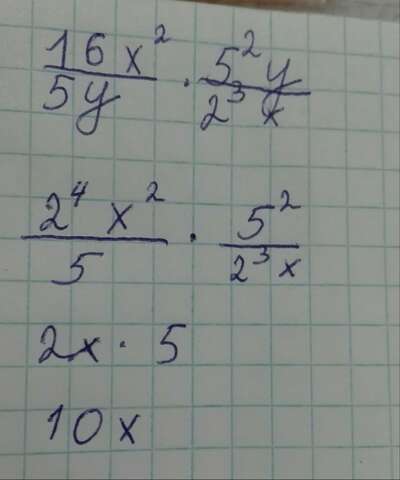 16x²/5y · 5²y/2³x
2⁴x²/5 · 5²/2³x
2x · 5
10x